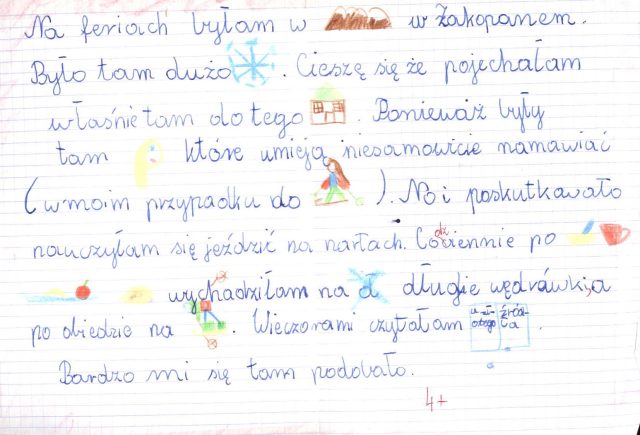 Na feriach byłam w w Zakopanem.
Było tam dużo . Cieszę się że pojechałam
właśnie tam do tego . Ponieważ były
tam które umieją niesamowicie namawiać
(w moim przypadku do ). No i poskutkowało
nauczyłam się jeździć na nartach. Codziennie po
wychodziłam na długie wędrówki, a
po obiedzie na . Wieczorami czytałam
Bardzo mi się tam podobało.
4+